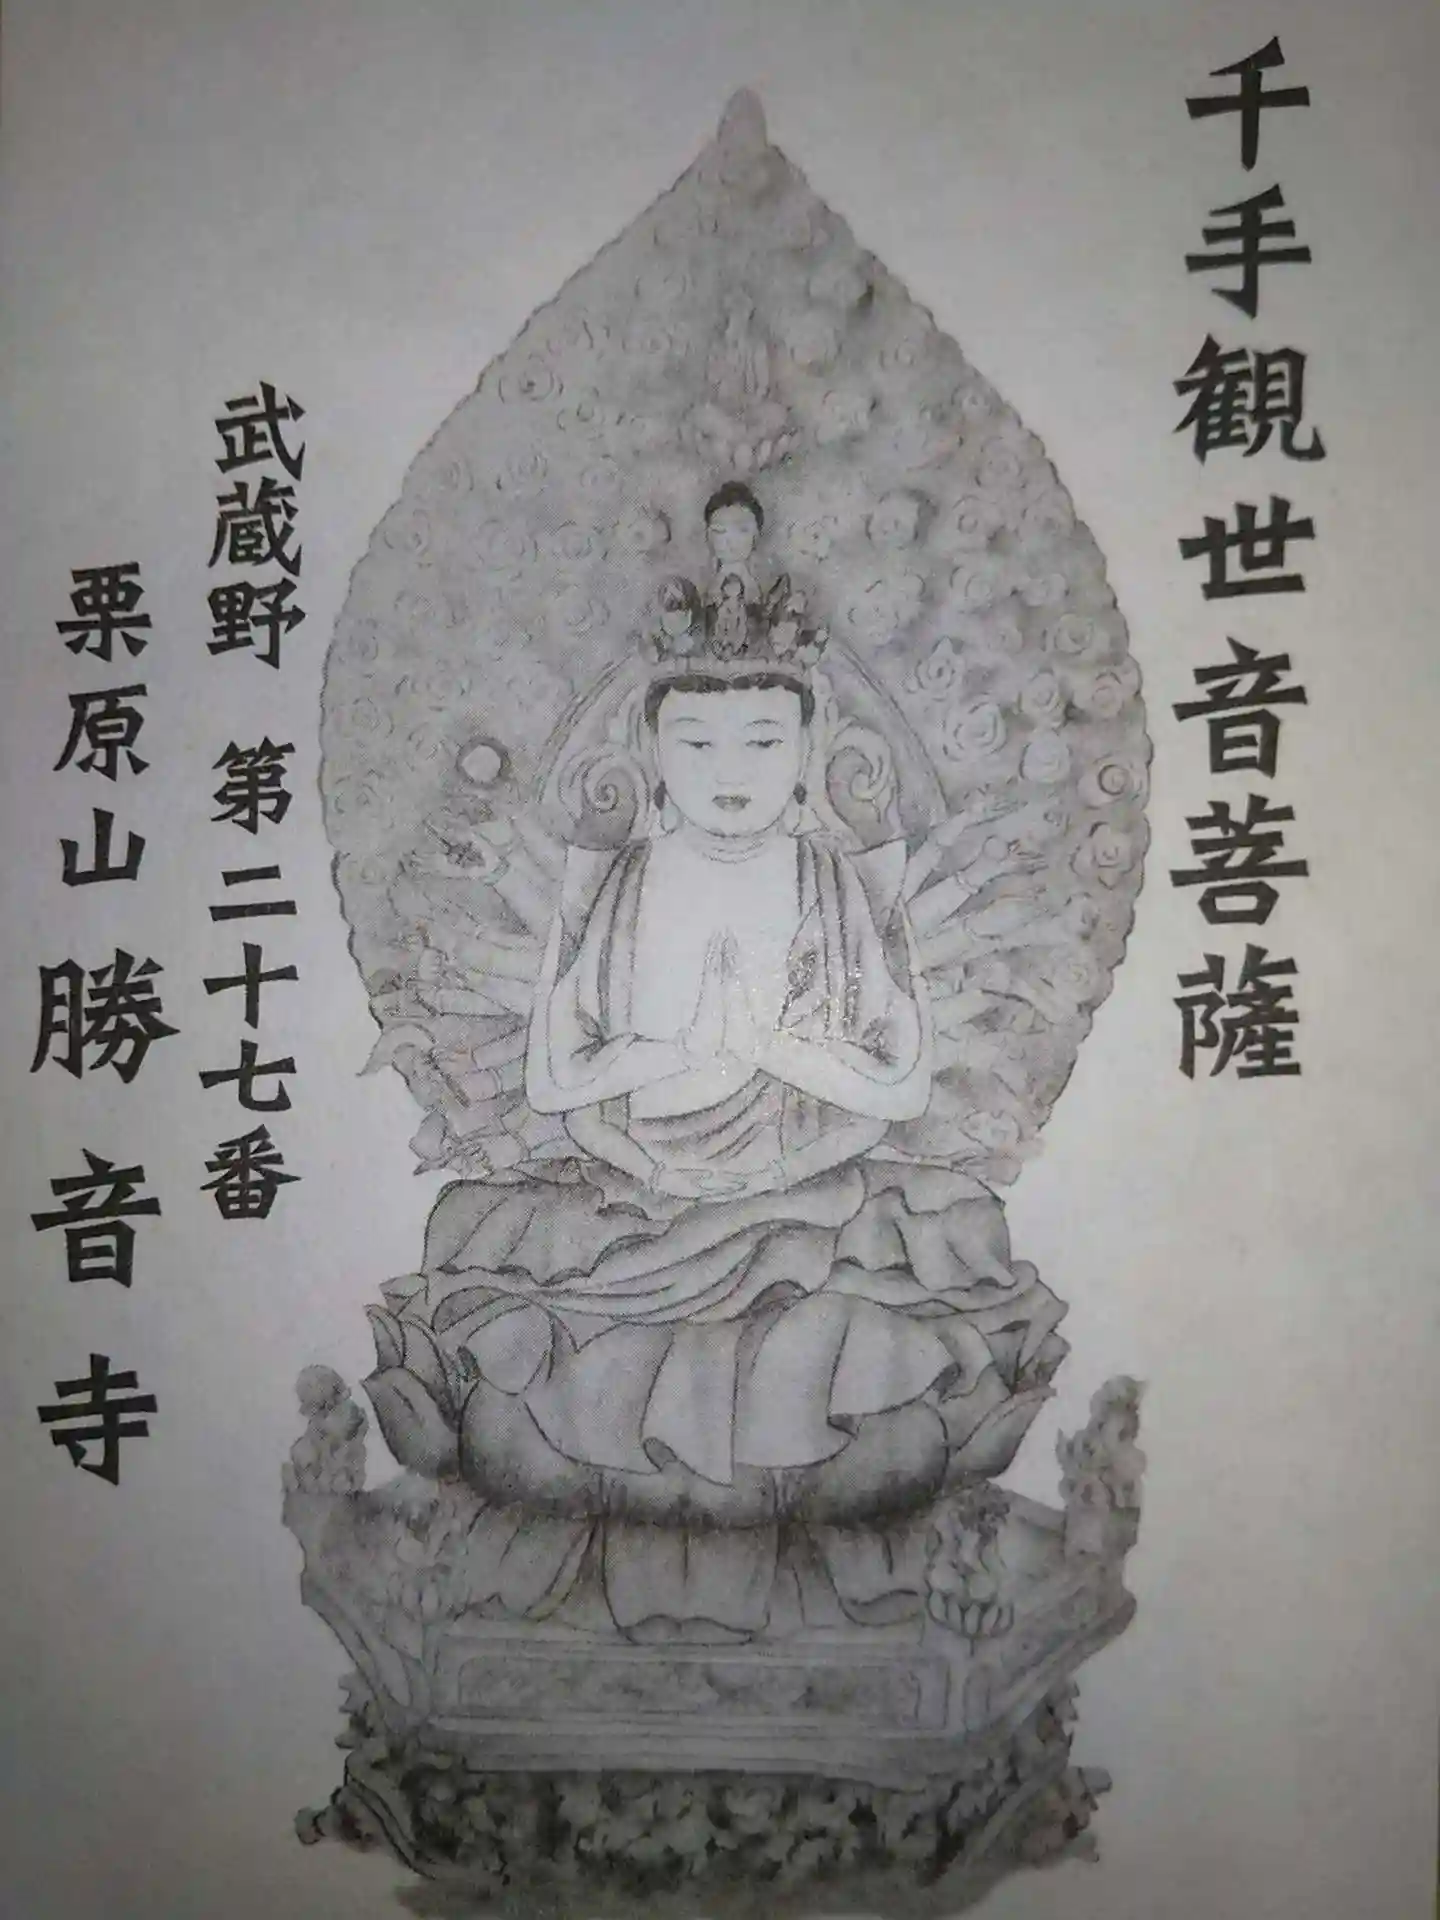 千手観世音菩薩
武蔵野 第二十七番
栗原山 勝音寺